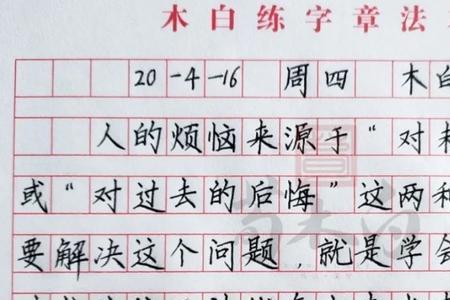 木白练字章法
20-4-16 周四 木白
人的烦恼来源于“对
或“对过去的后悔”这两种
要解决这个问题，就是学会